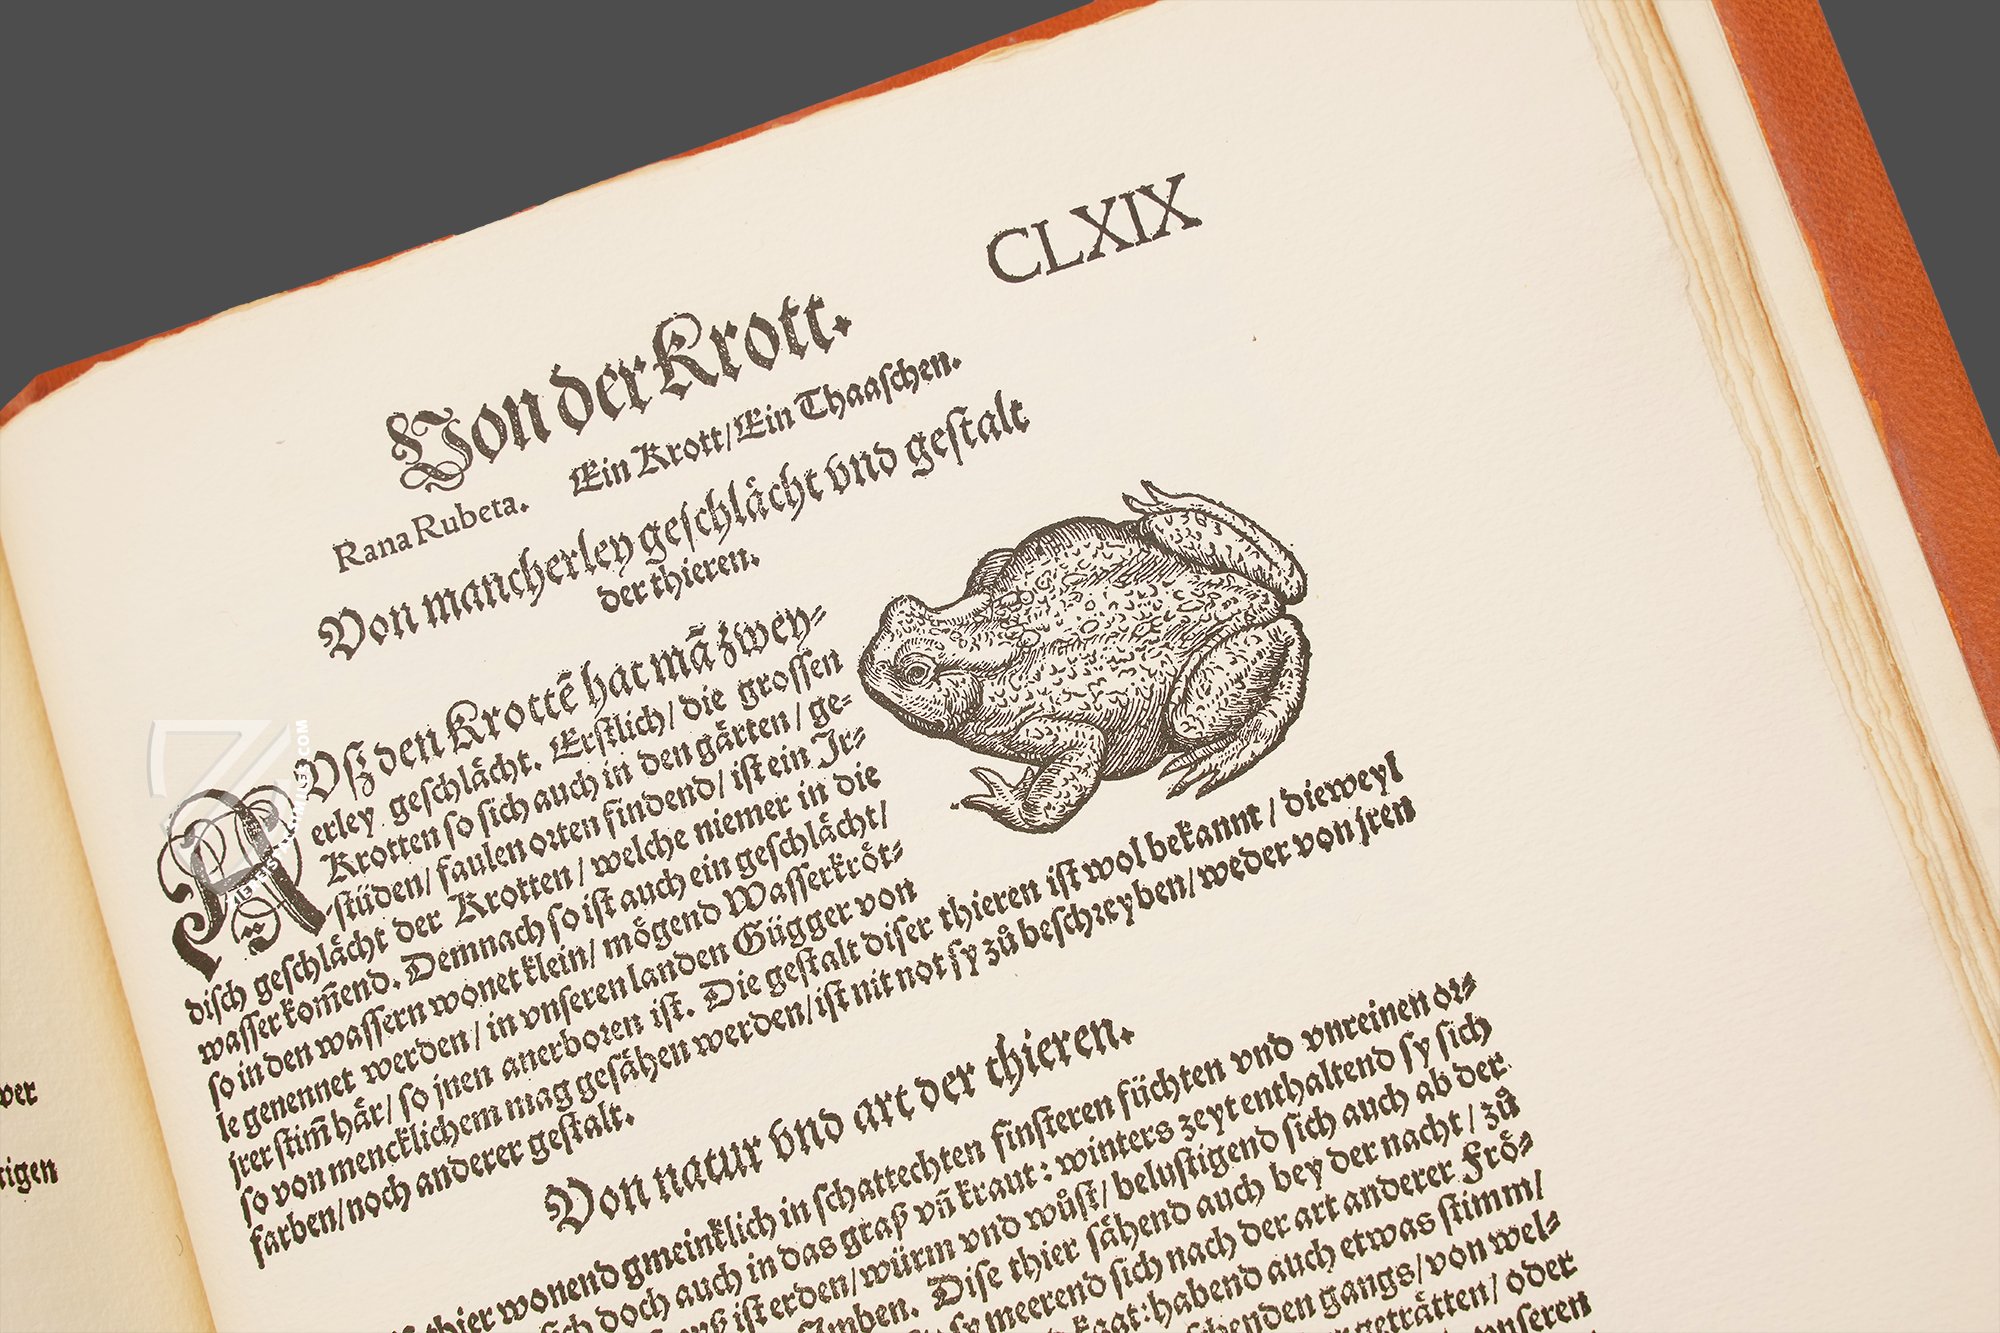 CLXIX
Von der Krott.
Rana Rubeta. Ein Krott/Ein Thaaschen.
Von mancherley geschlächt vnd gestalt
der thieren.
Vsz den Krottē hat mā zwey-
erley geschlächt. Erstlich/ die grossen
Krotten so sich auch in den gärten/ ge-
stüden/ faulen orten findend/ ist ein Jr-
disch geschlächt der Krotten/ welche niemer in die
wasser kom̄end. Demnach so ist auch ein geschlächt/
so in den wassern wonet klein/ mögend Wasserkröt-
le genennet werden/ in vnseren landen Gügger von
jrer stim̄ här/ so jnen anerboren ist. Die gestalt diser thieren ist wol bekannt/ dieweyl
so von mencklichem mag gesähen werden/ist nit not sy zů beschreyben/weder von jren
farben/noch anderer gestalt.
Von natur vnd art der thieren.
thier wonend gmeinklich in schattechten finsteren füchten vnd vnreinen or-
sich doch auch in das graß vn̄ kraut: winters zeyt enthaltend sy sich
ist erden/ würm vnd wůst/ belustigend sich auch ab der
Dise thier sähend auch bey der nacht/ zů
sy meerend sich nach der art anderer Frö-
habend auch etwas stimm/
gangs/ von wel-
geträtten/ oder
vnseren
wer
tigen